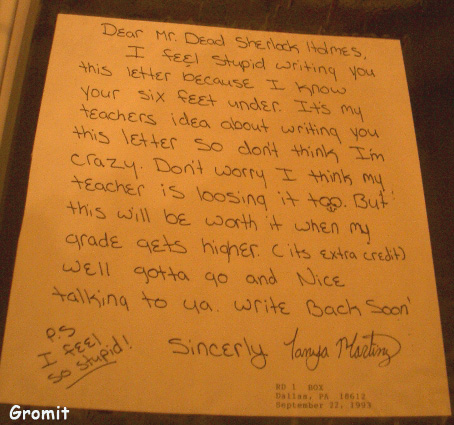 Dear Mr. Dead Sherlock Holmes,
I feel Stupid writing you
this letter because I know
your six feet under. It's my
teachers idea about writing you
this letter so don't think I'm
crazy. Don't worry I think my
teacher is loosing it too. But
this will be worth it when my
grade gets higher. (its extra credit)
Well gotta go and Nice
talking to ya. Write Back Soon
P.S
I feel
so stupid!
Sincerly Tanya Martinz
RD 1 BOX
Dallas, PA 18612
September 22, 1993
Gromit